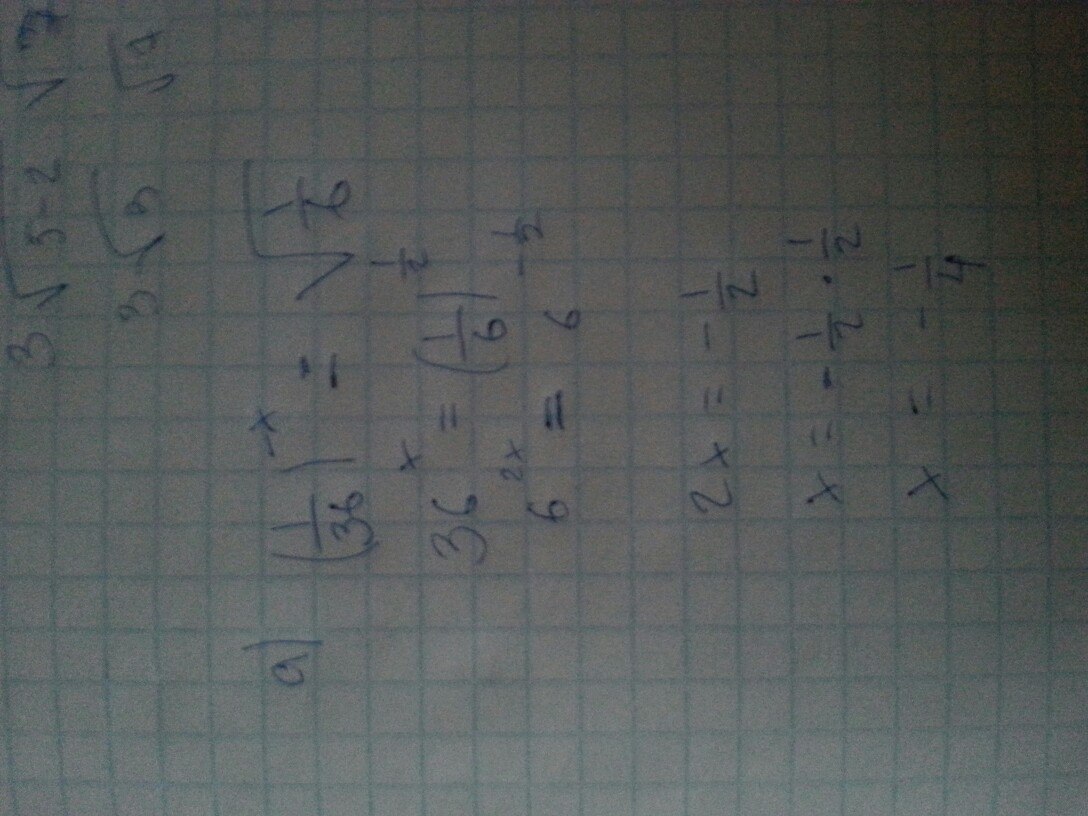 3√5-2 √7
3√3 √7
a) (1/36)^-x = √(1/6)
36^x = (1/6)^1/2
6^2x = 6^-1/2
2x = -1/2
x = -1/2 · 1/2
x = -1/4